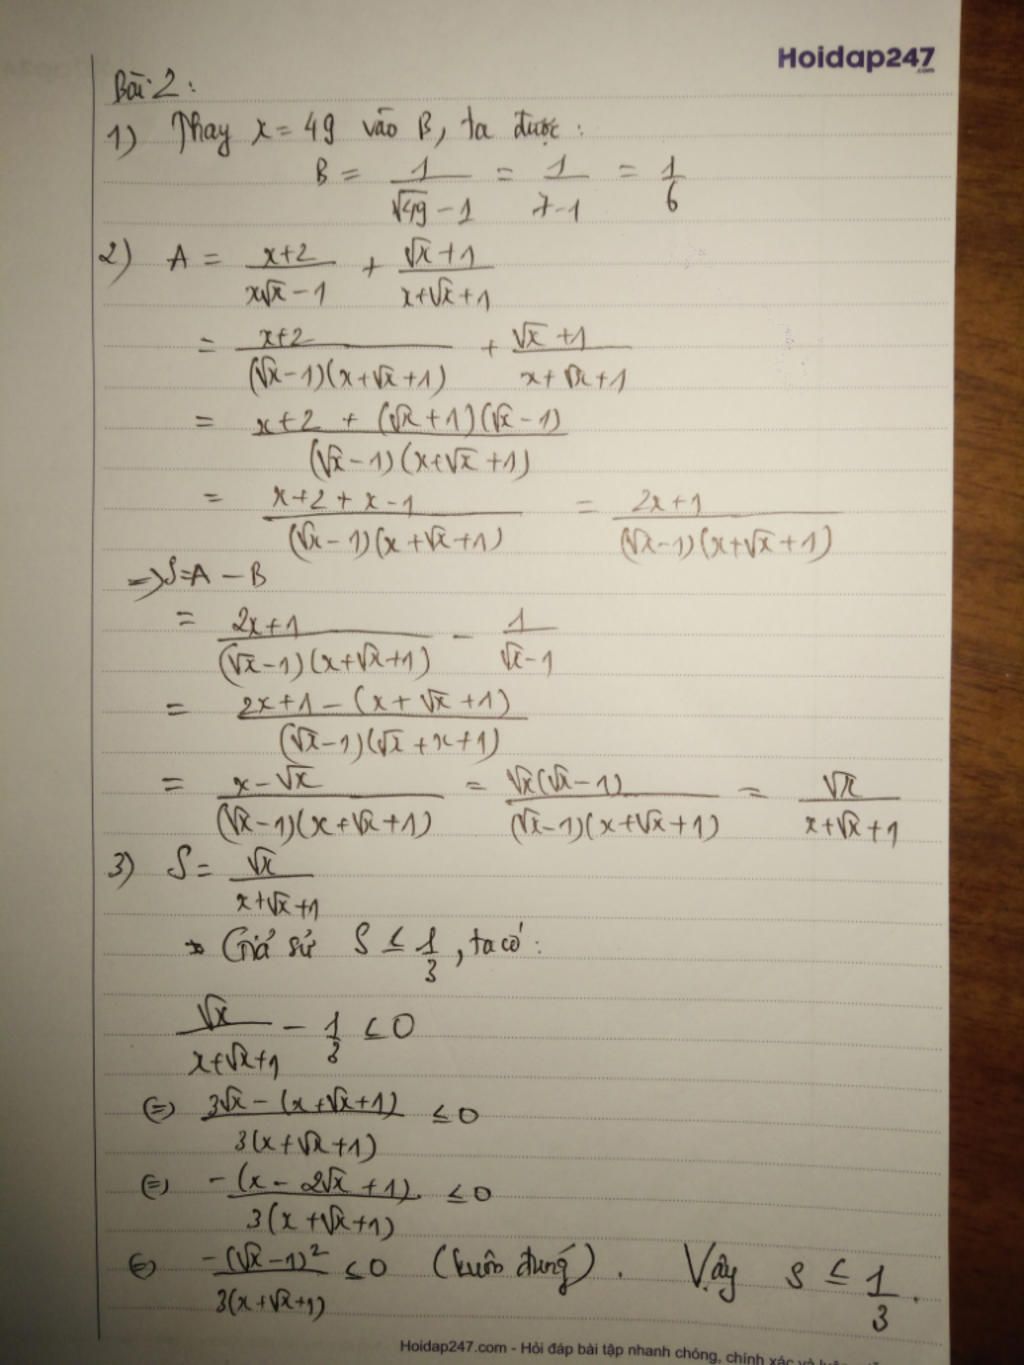 Hoidap247
.com
Bài 2:
1) Thay x = 49 vào B, ta được:
B = 1/(√49 - 1) = 1/(7-1) = 1/6
2) A = (x+2)/(x√x - 1) + (√x + 1)/(x+√x+1)
= (x+2)/((√x-1)(x+√x+1)) + (√x+1)/(x+√x+1)
= (x+2 + (√x+1)(√x-1))/((√x-1)(x+√x+1))
= (x+2+x-1)/((√x-1)(x+√x+1)) = (2x+1)/((√x-1)(x+√x+1))
=> S=A - B
= (2x+1)/((√x-1)(x+√x+1)) - 1/(√x-1)
= (2x+1-(x+√x+1))/((√x-1)(√x+x+1))
= (x-√x)/((√x-1)(x+√x+1)) = (√x(√x-1))/((√x-1)(x+√x+1)) = √x/(x+√x+1)
3) S = √x/(x+√x+1)
* Giả sử S ≤ 1/3, ta có:
√x/(x+√x+1) - 1/3 ≤ 0
(=) (3√x-(x+√x+1))/(3(x+√x+1)) ≤ 0
(=) (-(x-2√x+1))/(3(x+√x+1)) ≤ 0
(=) (-(√x-1)²)/(3(x+√x+1)) ≤ 0 (luôn đúng). Vậy S ≤ 1/3.
Hoidap247.com - Hỏi đáp bài tập nhanh chóng, chính xác và